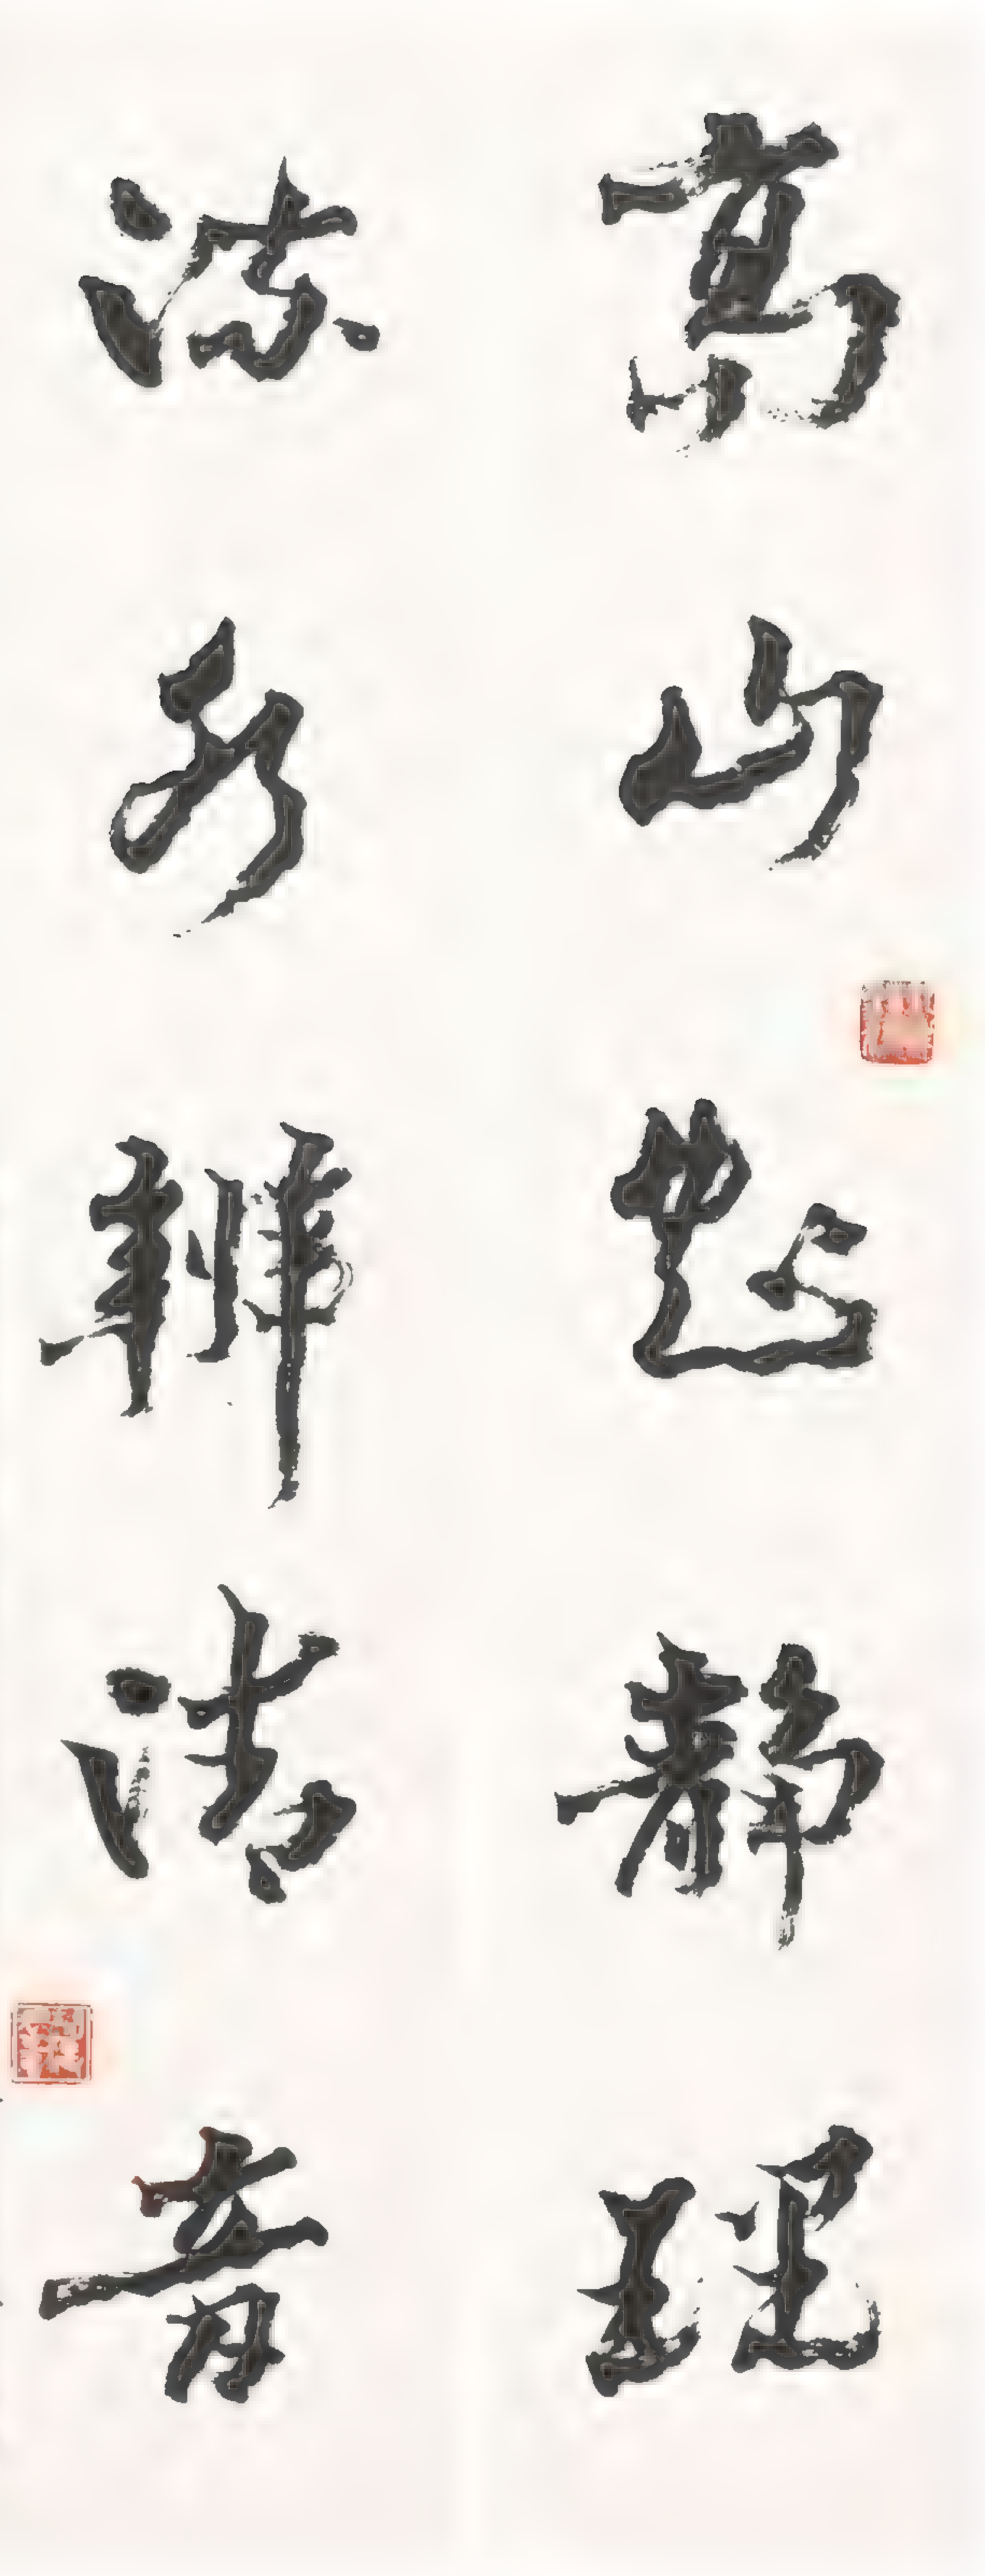 高山靜理
流水辨清音